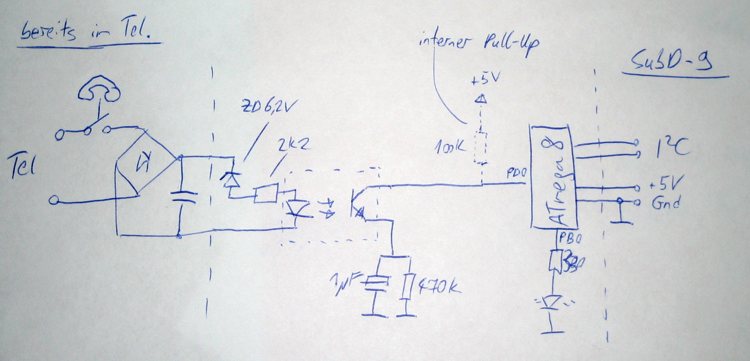 bereits im Tel.
interner Pull-Up
SubD-9
+5V
ZD6,2V
2k2
100k
Tel
PD0
ATmega 8
I²C
+5V
Gnd
PB0
1µF
470k